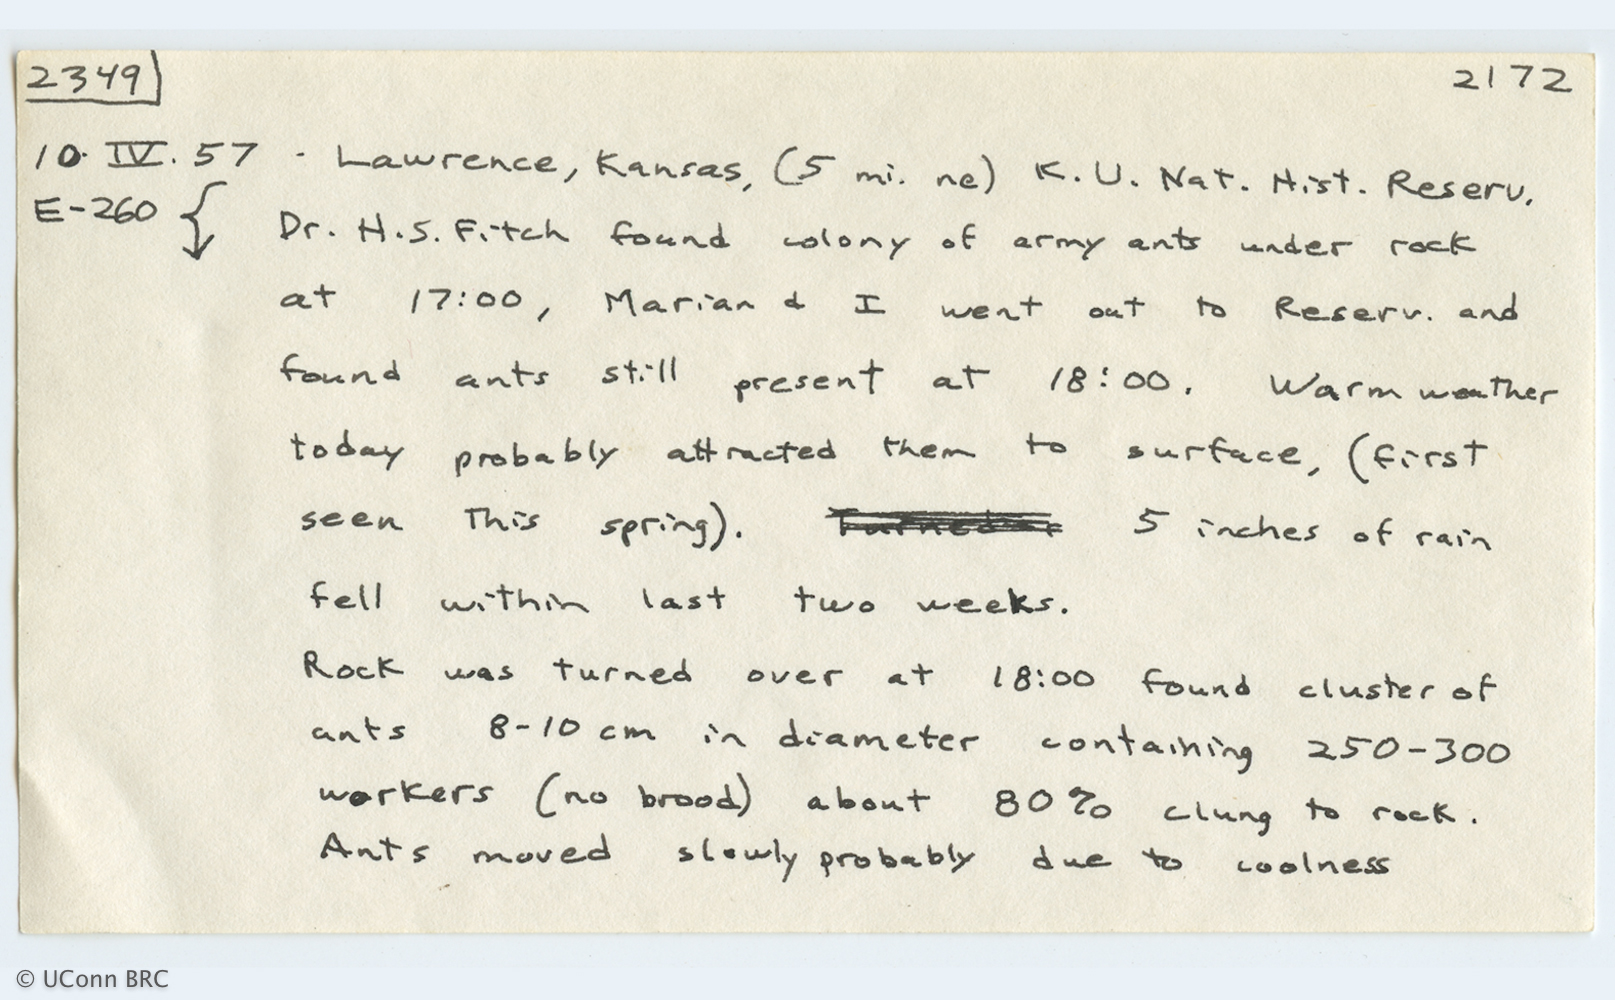 2349 2172
10. IV. 57 - Lawrence, Kansas, (5 mi. ne) K.U. Nat. Hist. Reserv.
E-260 Dr. H.S. Fitch found colony of army ants under rock
at 17:00, Marian & I went out to Reserv. and
found ants still present at 18:00. Warm weather
today probably attracted them to surface, (first
seen this spring). 5 inches of rain
fell within last two weeks.
Rock was turned over at 18:00 found cluster of
ants 8-10 cm in diameter containing 250-300
workers (no brood) about 80% clung to rock.
Ants moved slowly probably due to coolness
© UConn BRC